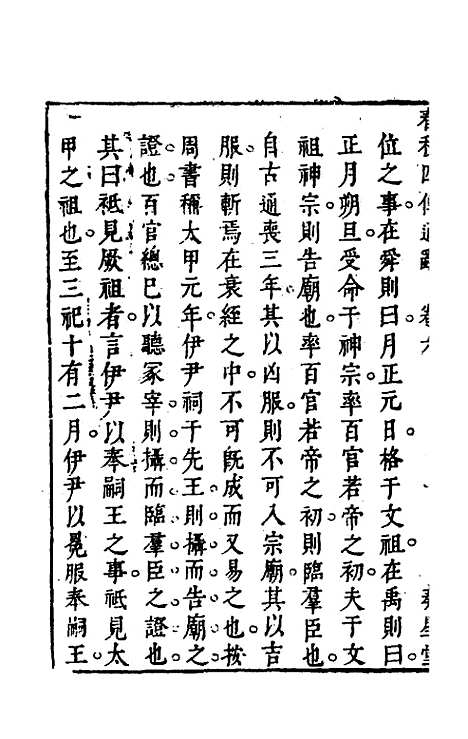 位之事在舜則曰月正元日格于文祖在禹則曰
正月朔旦受命于神宗率百官若帝之初夫于文
祖神宗則告廟也率百官若帝之初則臨羣臣也
自古通喪三年其以凶服則不可入宗廟其以吉
服則斬焉在衰絰之中不可旣成而又易之也按
周書稱太甲元年伊尹祠于先王則攝而告廟之
證也百官總巳以聽冢宰則攝而臨羣臣之證也
其曰祗見厥祖者言伊尹以奉嗣王之事祗見太
甲之祖也至三祀十有二月伊尹以冕服奉嗣王